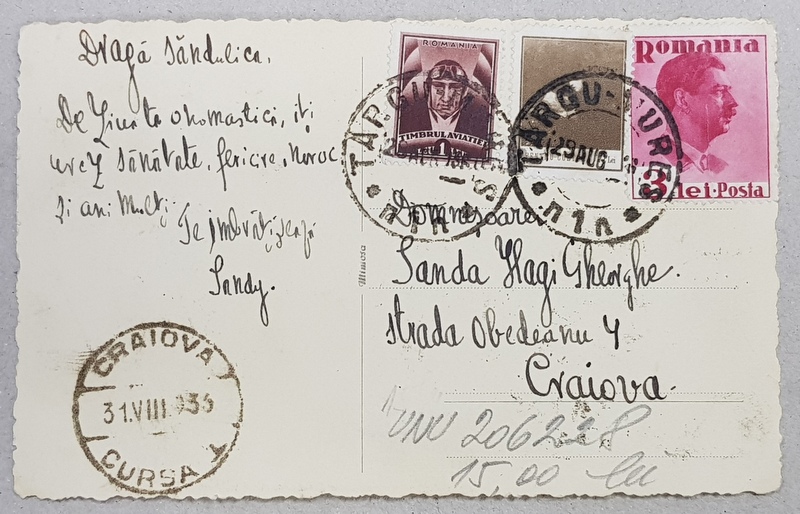 Dragă Săndulica,
De Ziua ta onomastică, îți
urez sănătate, fericire, noroc
și ani mulți
Te îmbrățișează
Sandy.
ROMANIA
TIMBRUL AVIAȚIEI
1
Romania
3 lei·Posta
TÂRGU-MUREȘ
29 AUG
TÂRGU-MUREȘ
29 AUG
Mimosa
Domnișoarei
Sanda Hagi Gheorghe.
strada Obedeanu 4
Craiova.
CRAIOVA
31.VIII.935
CURSA
206228
15,00 lei